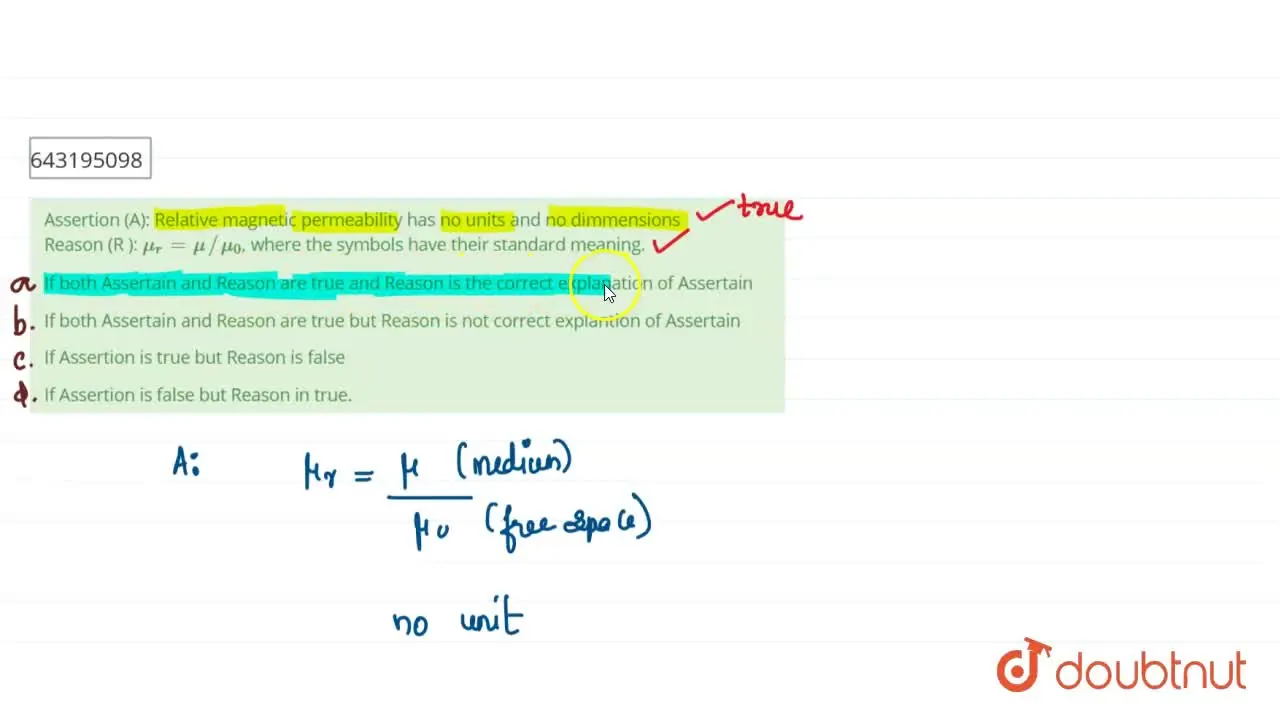 643195098
Assertion (A): Relative magnetic permeability has no units and no dimmensions ✓ true
Reason (R ): μr = μ / μ0, where the symbols have their standard meaning. ✓
a If both Assertain and Reason are true and Reason is the correct explanation of Assertain
b. If both Assertain and Reason are true but Reason is not correct explantion of Assertain
c. If Assertion is true but Reason is false
d. If Assertion is false but Reason in true.
A: μr = μ (medium)
μ0 (free space)
no unit
doubtnut